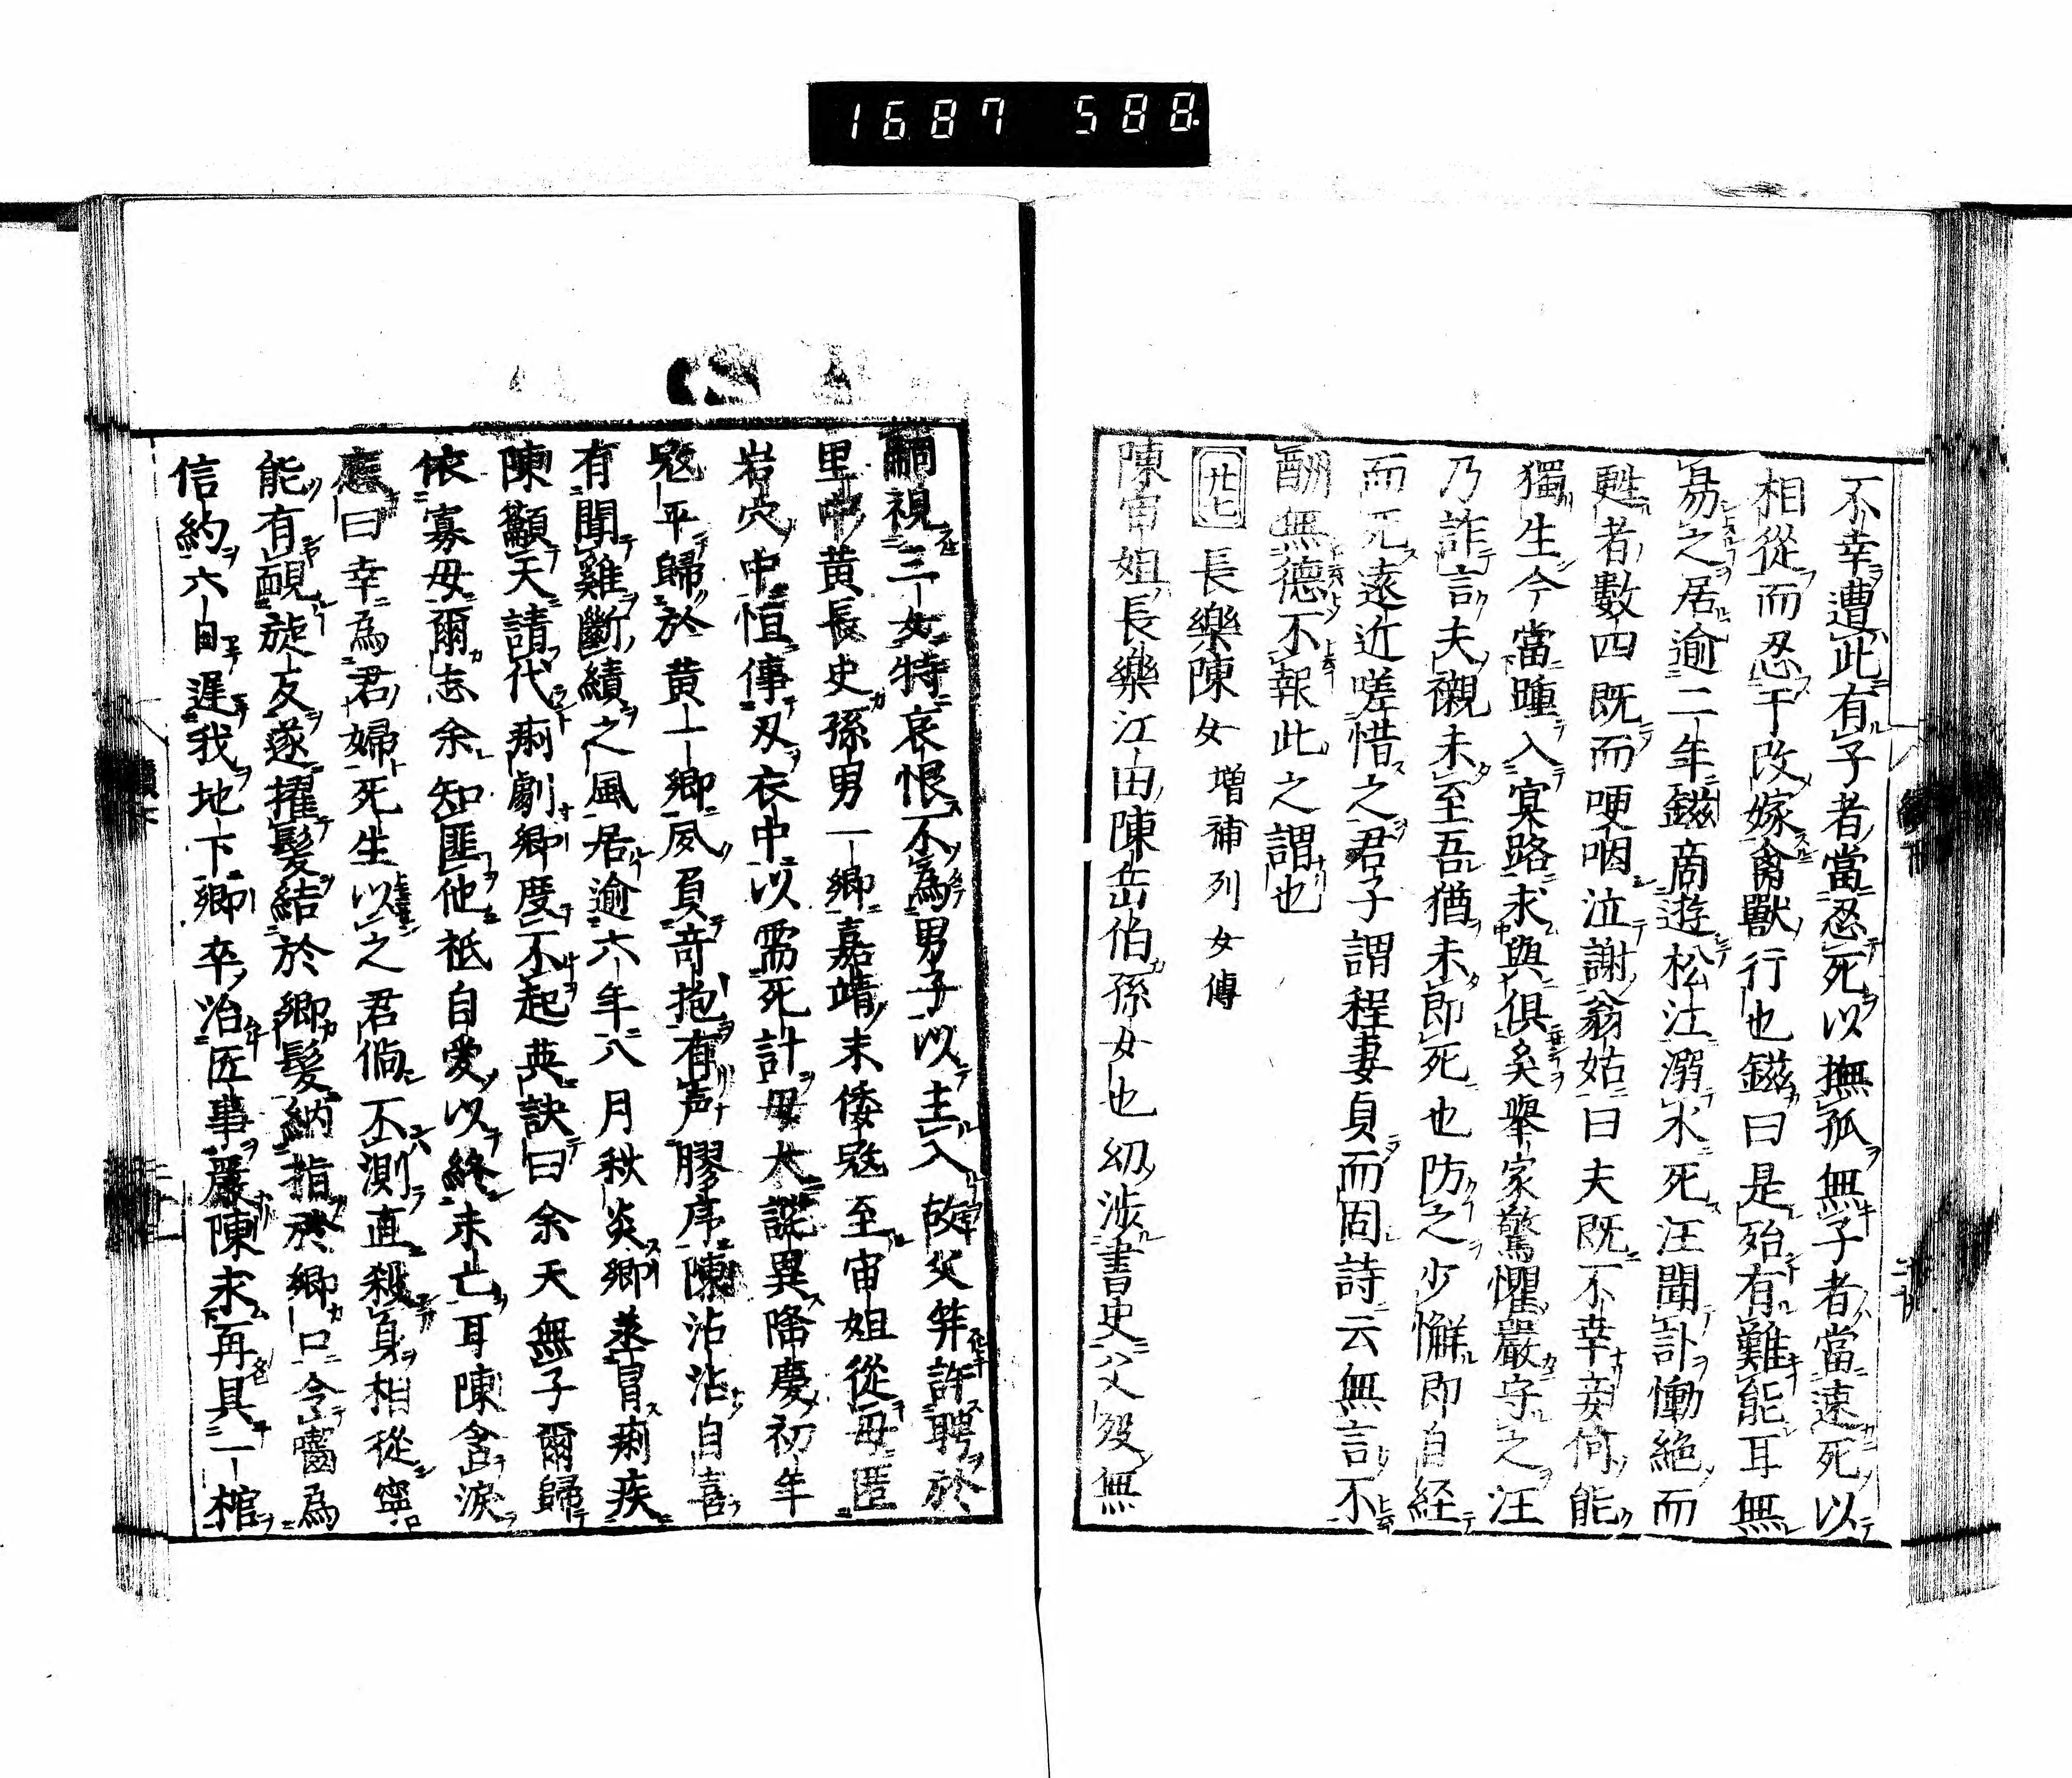 1687 588.
不幸遭此有子者當忍死以撫孤無子者當速死以
相從而忍于改嫁禽獸行也鎡曰是殆有難能耳無
易之居逾二年鎡商遊松江溺水死汪聞訃慟絶而
甦者數四既而哽咽泣謝翁姑曰夫既不幸妾何能
獨生今當踵入冥路求與俱矣舉家驚懼嚴守之汪
乃詐言夫襯未至吾猶未即死也防之少懈即自経
而死遠近嗟惜之君子謂程妻貞而固詩云無言不
酬無德不報此之謂也
廿七 長樂陳女 増補列女傳
陳宙姐長樂江由陳岳伯孫女也幼渉書史父殁無
嗣視三女特哀恨不為男子以主入故父笄許聘於
里中黄長史孫男一卿嘉靖末倭寇至宙姐從毋匿
岩穴中恒倳刄衣中以需死計毋大詫異隆慶初年
寇平歸於黄一卿夙負竒抱有声膠序陳沾沾自喜
有聞雞斷績之風居逾六年八月秋炎卿蒸冒痢疾
陳籲天請代痢劇卿度不起與訣曰余天無子爾歸
依寡毋爾志余知匪他祇自愛以終未亡耳陳含淚
應曰幸為君婦死生以之君倘不測直殺身相從寧
能有靦旋反遂擢髮結於卿髮納指於卿口令嚙為
信約六自遲我地下卿卒治匠事嚴陳求再具一棺